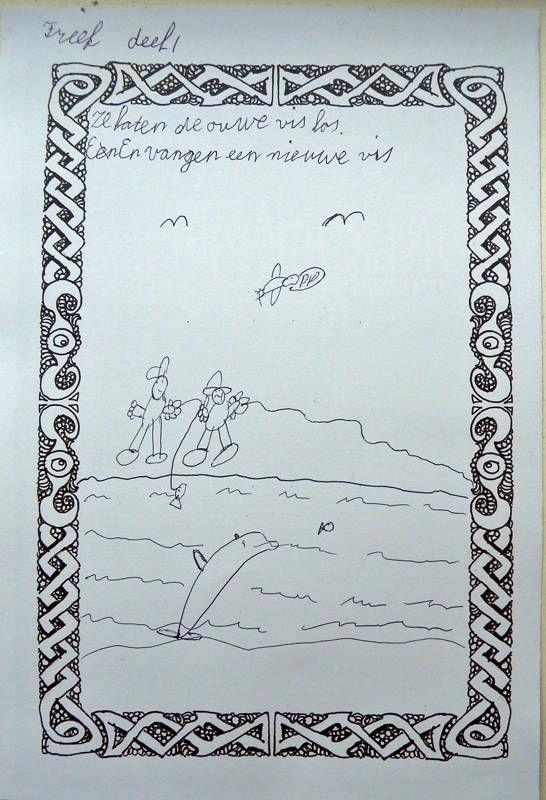 Freek deel 1
Ze laten de ouwe vis los.
EenEn vangen een nieuwe vis